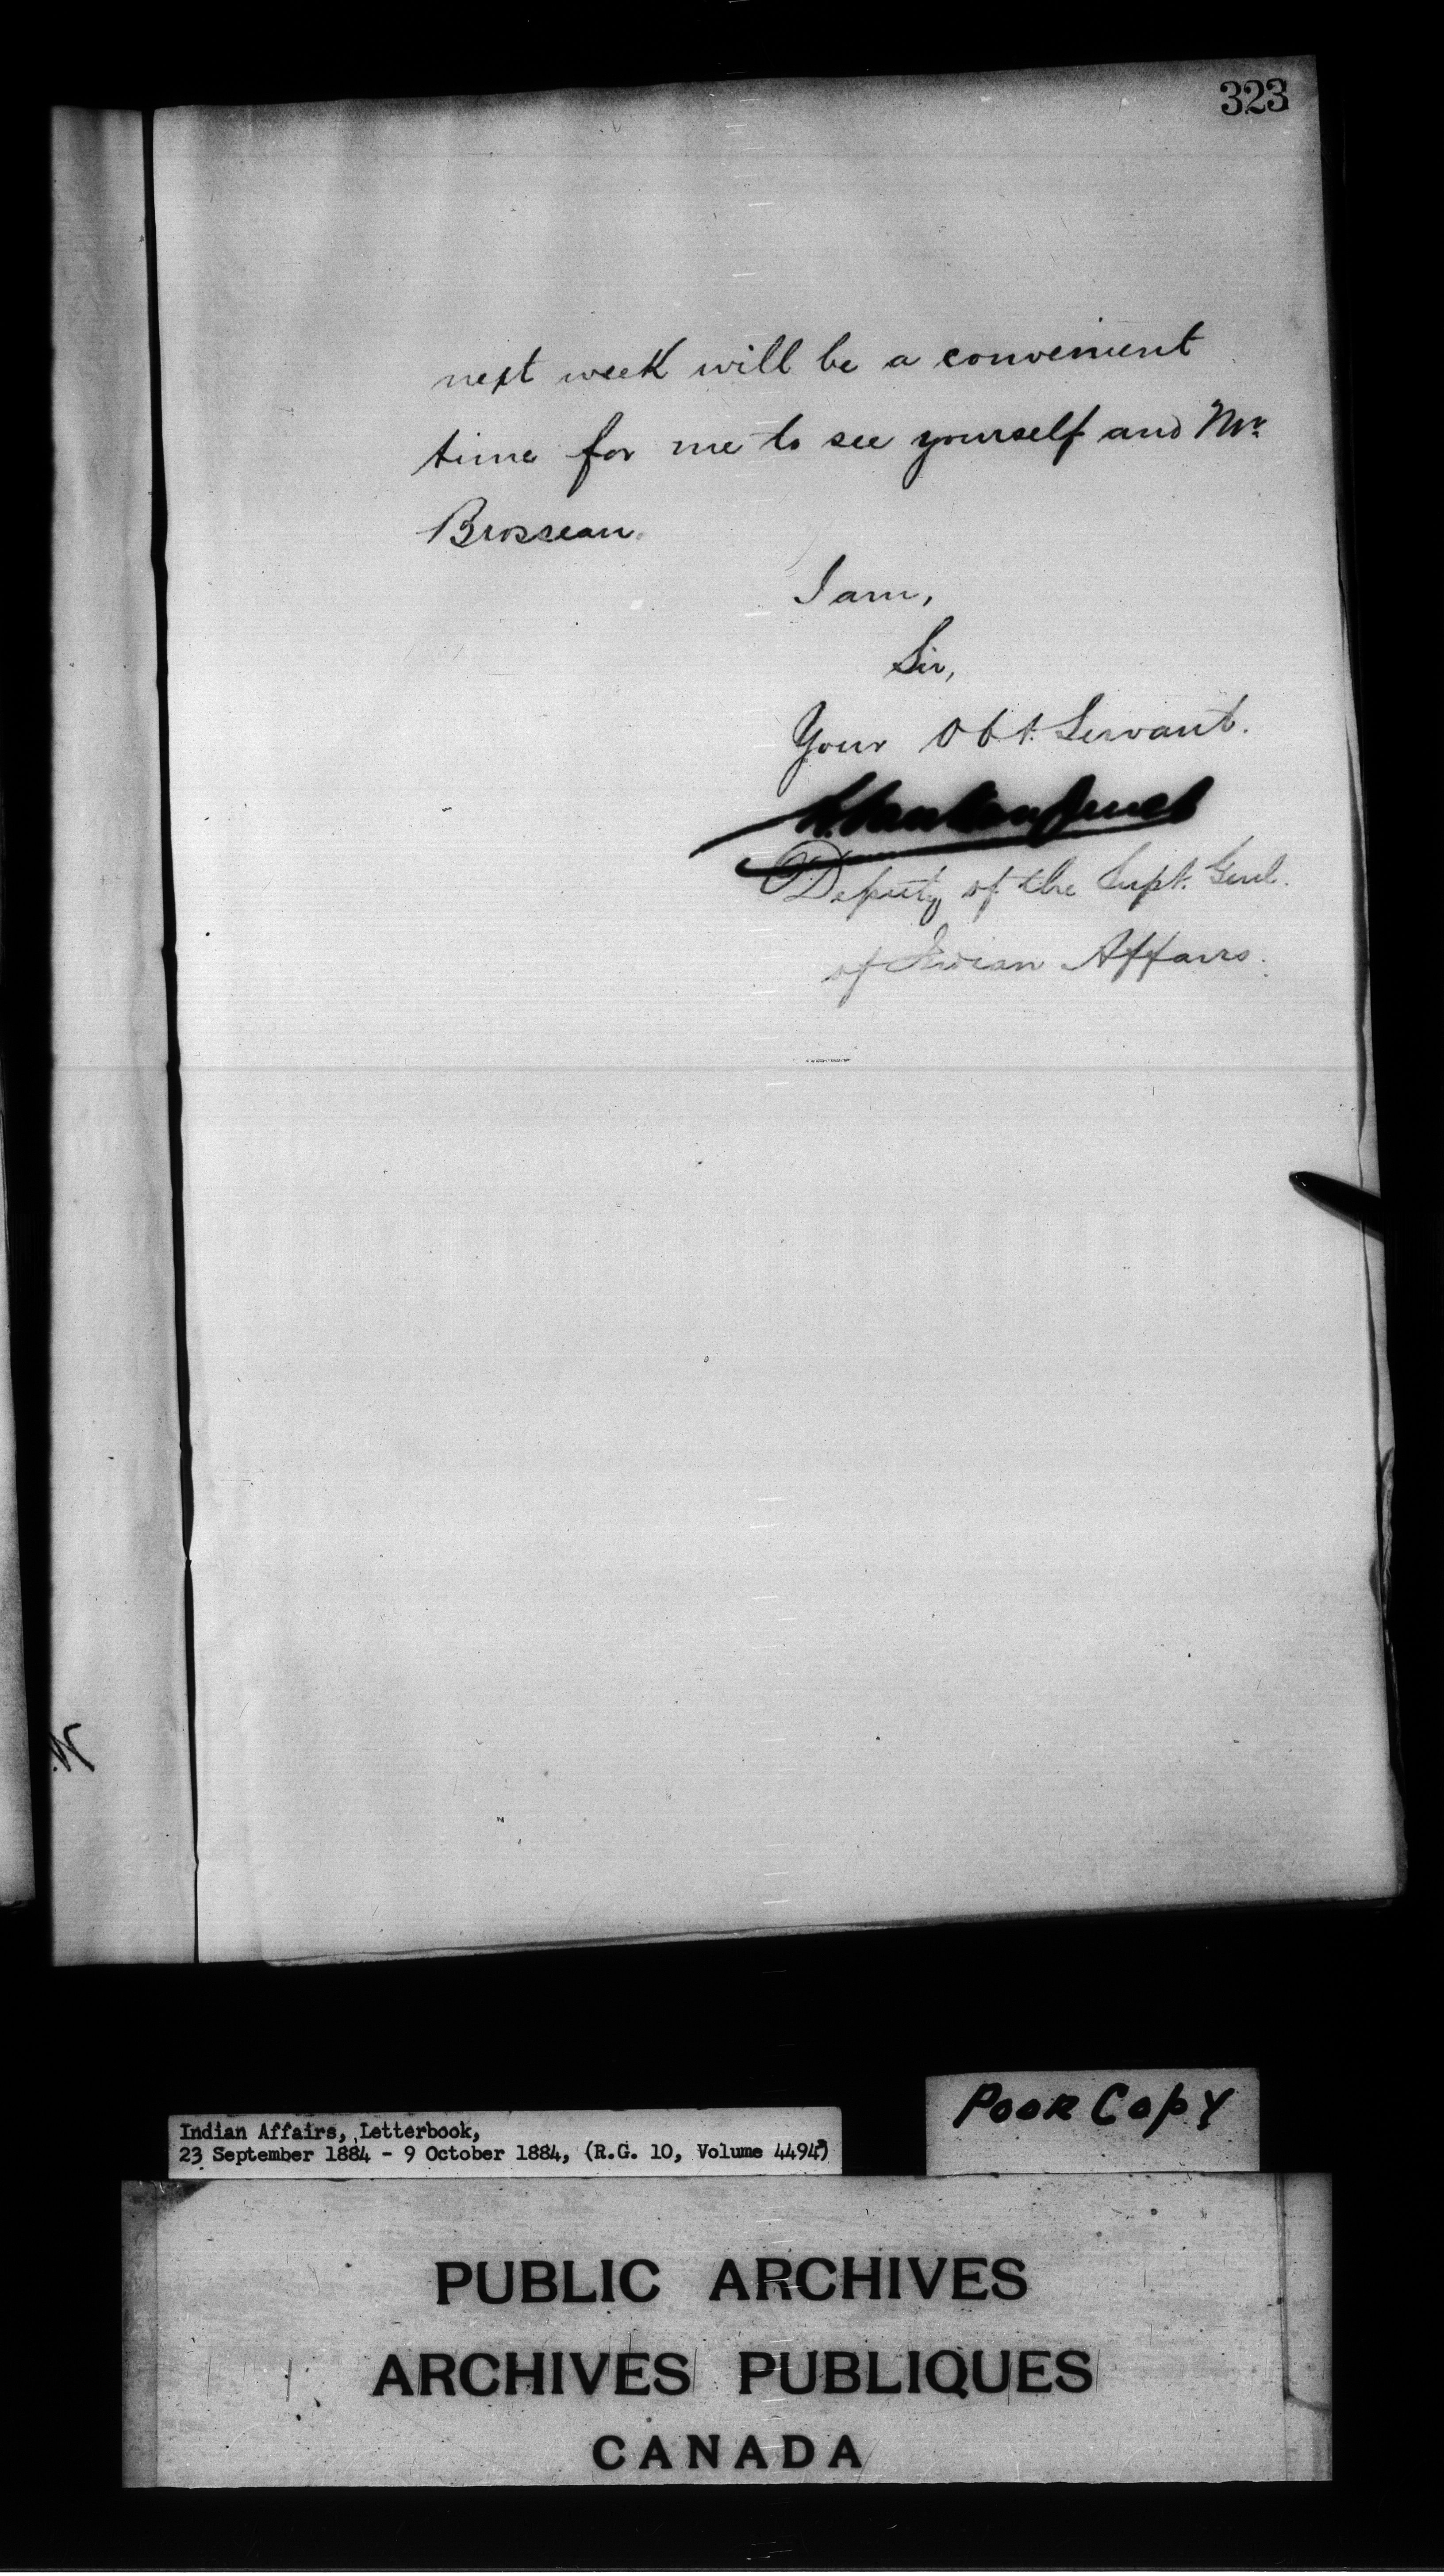 323
next week will be a convenient
time for me to see yourself and Mr.
Brosseau.
I am,
Sir,
Your Obt. Servant.
L. Vankoughnet
Deputy of the Supt. Genl.
of Indian Affairs.
Indian Affairs, Letterbook,
23 September 1884 - 9 October 1884, (R.G. 10, Volume 4494)
POOR COPY
PUBLIC ARCHIVES
ARCHIVES PUBLIQUES
CANADA